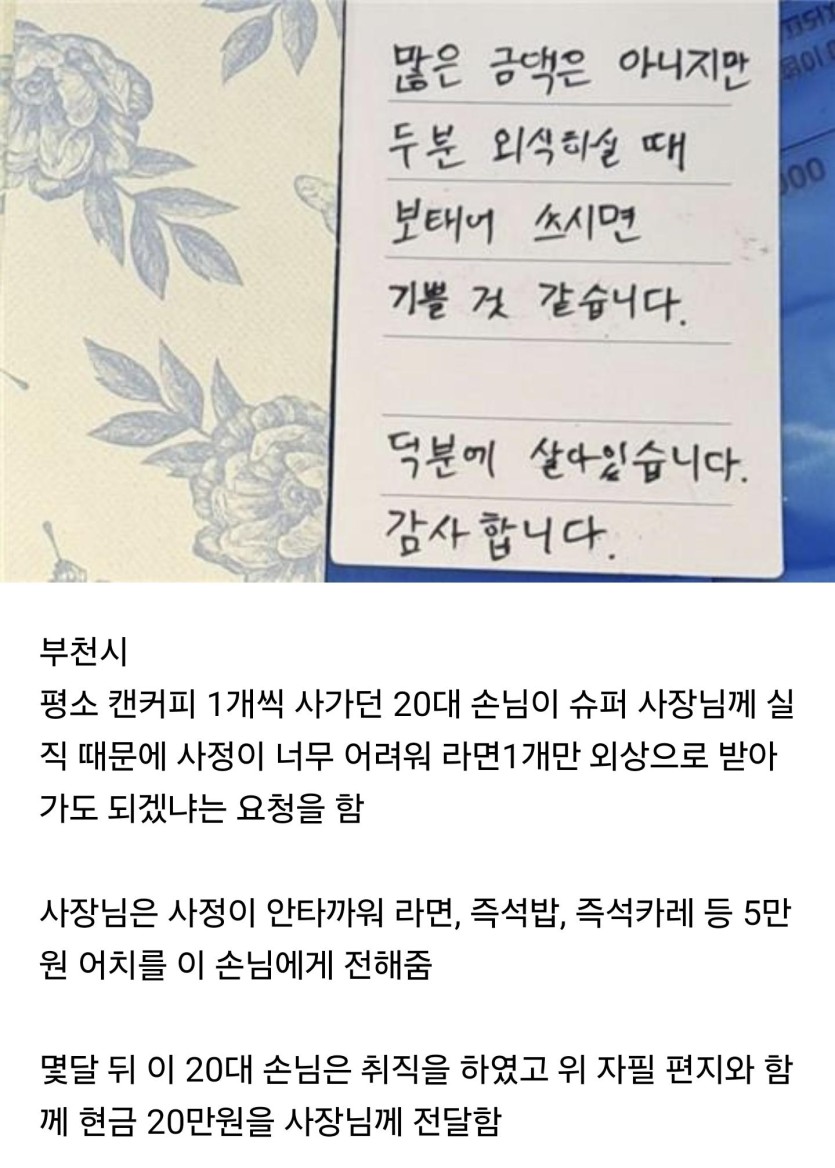 많은 금액은 아니지만
두분 외식하실 때
보태어 쓰시면
기쁠 것 같습니다.
덕분에 살아있습니다.
감사합니다.
부천시
평소 캔커피 1개씩 사가던 20대 손님이 슈퍼 사장님께 실
직 때문에 사정이 너무 어려워 라면1개만 외상으로 받아
가도 되겠냐는 요청을 함
사장님은 사정이 안타까워 라면, 즉석밥, 즉석카레 등 5만
원 어치를 이 손님에게 전해줌
몇달 뒤 이 20대 손님은 취직을 하였고 위 자필 편지와 함
께 현금 20만원을 사장님께 전달함